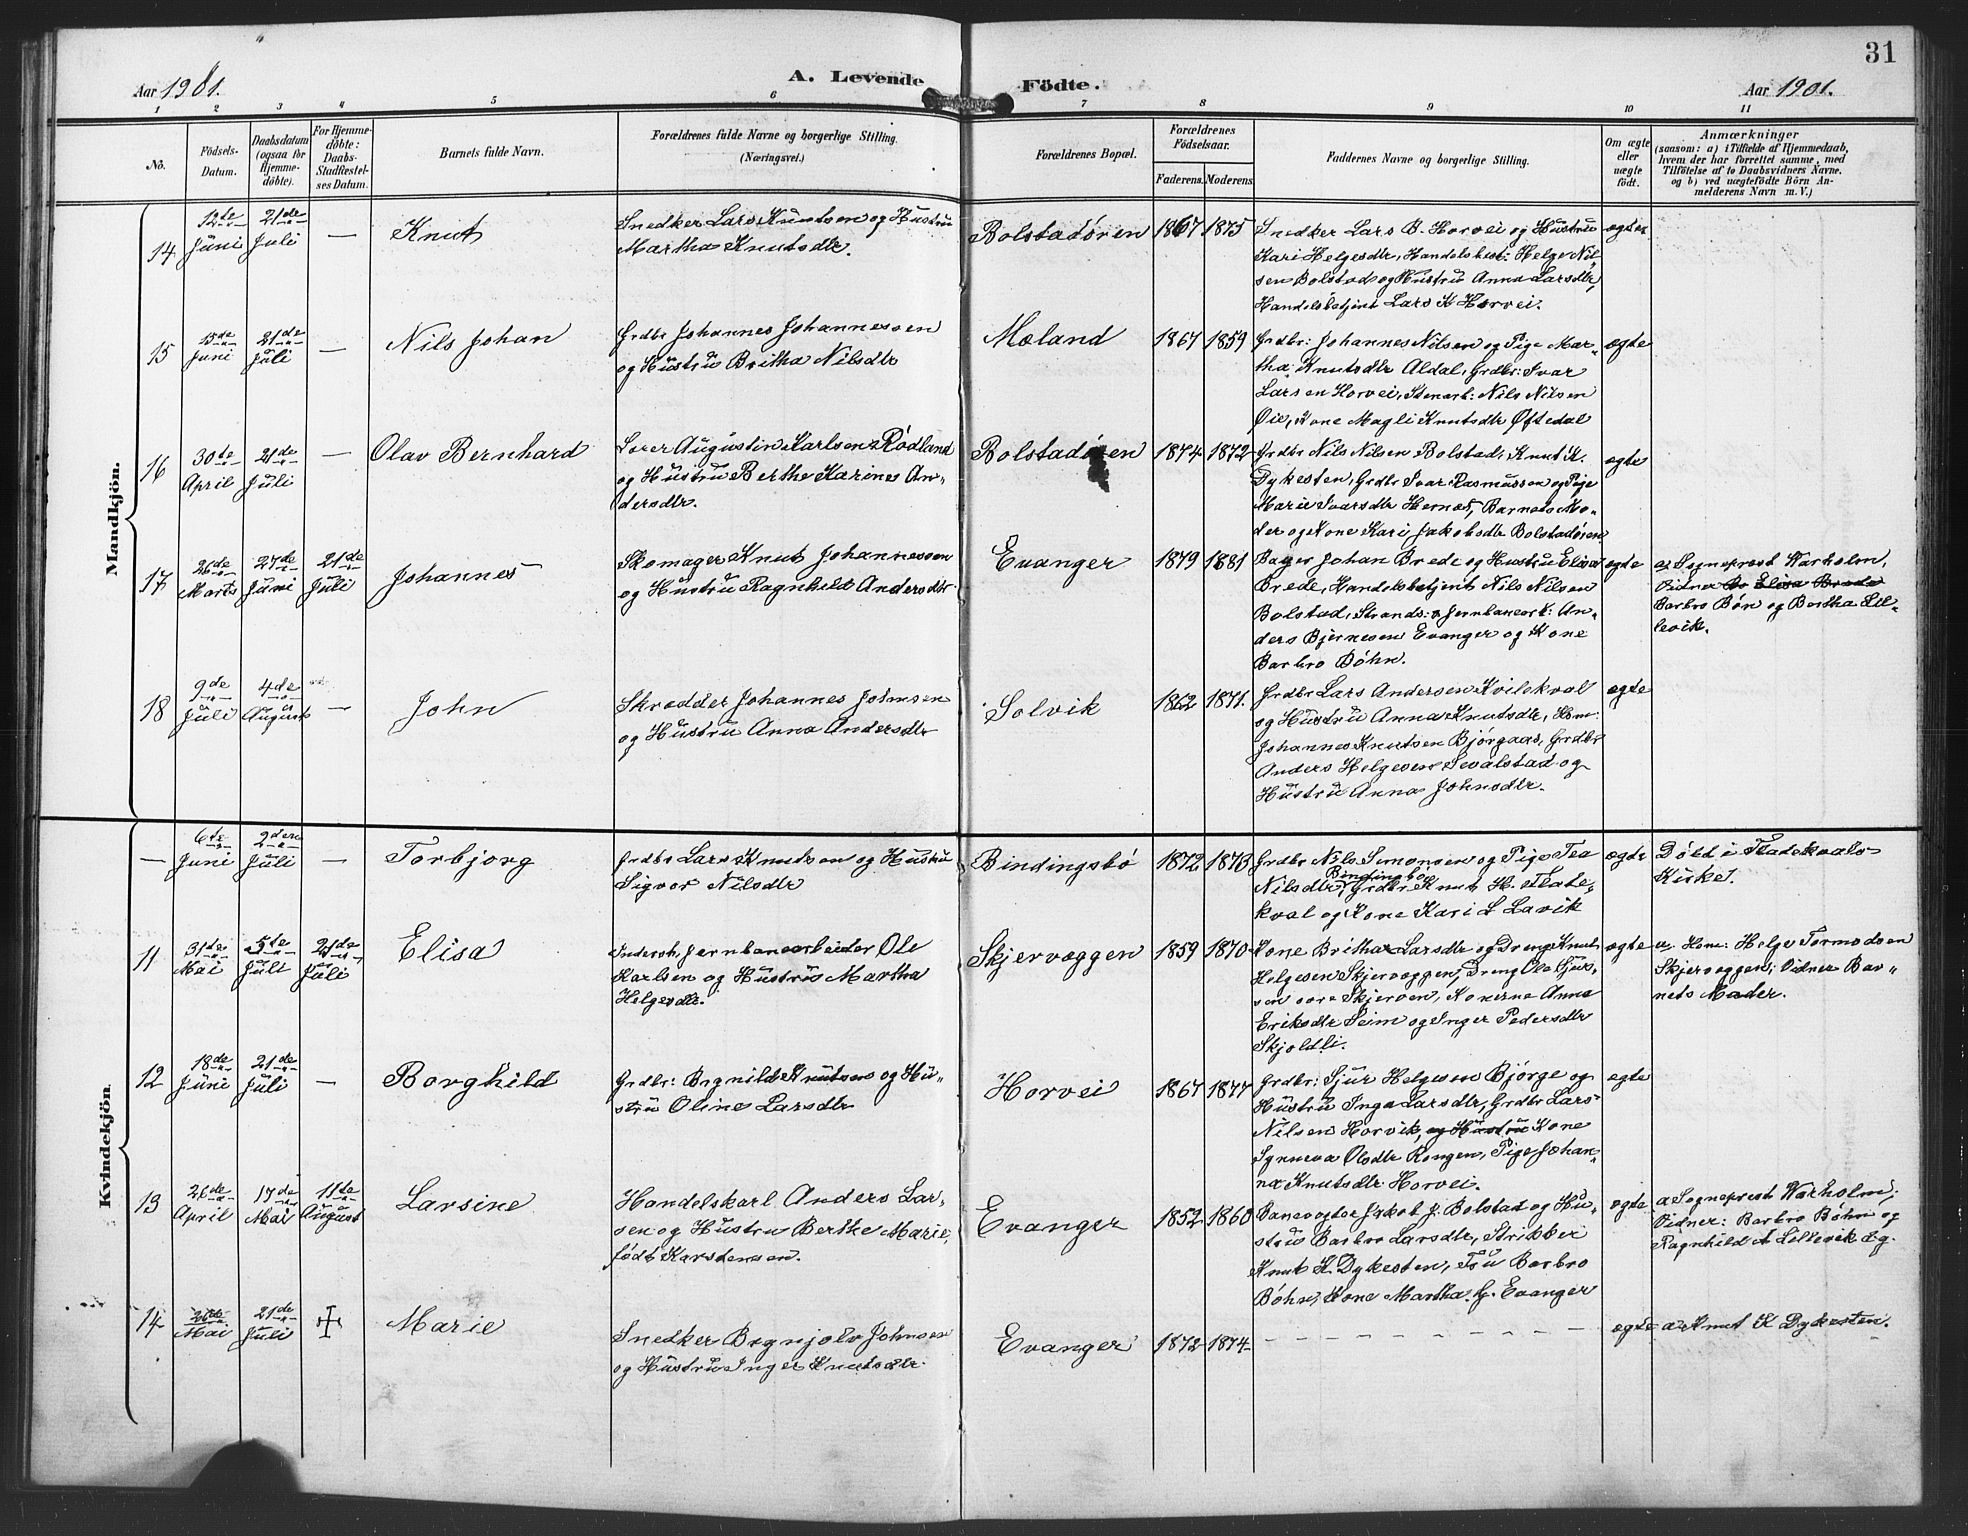 31
Aar 1901.
A. Levende Födte.
Aar 1901.
1 2 3 4 5 6 7 8 9 10 11
No.
Födsels-
Datum.
Daabsdatum
(ogsaa for
Hjemme-
döbte).
For Hjemme-
döbte:
Daabs-
Stadfæstel-
ses Datum.
Barnets fulde Navn.
Forældrenes fulde Navne og borgerlige Stilling.
(Næringsvei.)
Forældrenes Bopæl.
Forældrenes
Födselsaar.
Faderens. Moderens.
Faddernes Navne og borgerlige Stilling.
Om ægte
eller
uægte
födt.
Anmærkninger
(saasom: a) i Tilfælde af Hjemmedaab,
hvem der har forrettet samme, med
Tilföielse af to Daabsvidners Navne.
og b) ved uægtefödte Börn An-
melderens Navn m. V.)
Mandkjön.
14
12te
Juni
21de
Juli
—
Knut
Snedker Lars Knutsen og Hustru
Martha Knutsdtr.
Bolstadøren
1867 1875
Snedker Lars B. Horvei og Hustru
Kari Helgesdtr, Handelsbest: Helge Nil-
sen Bolstad og Hustru Anna Larsdtr,
Handelsbetjent Lars K Horvei.
ægte
15
Juni
21de
Juli
—
Nils Johan
Grdbr Johannes Johannessen
og Hustru Britha Nilsdtr
Mæland
1867 1859
Grdbr: Johannes Nilsen og Pige Mar-
tha Knutsdtr Aldal, Grdbr: Ivar
Larsen Horvei, Stenarb: Nils Nilsen
Øie, Kone Magli Knutsdtr Øftedal
ægte
16
30te
April
21de
Juli
—
Olav Bernhard
Lærer Augustin Karlsen Rödland
og Hustru Berthe Karine An-
dersdtr.
Bolstadøren
1874 1872
Grdbr Nils Nilsen Bolstad, Knut K.
Dykesten, Grdbr Ivar Rasmussen og Pige
Marie Ivarsdtr Hernes, Barnets Mo-
der og Kone Kari Jakobsdtr Bolstadøren
ægte
17
26de
Marts
27de
Juni
21de
Juli
Johannes
Skomager Knut Johannessen
og Hustru Ragnhild Andersdtr.
Evanger
1879 1881
Bager Johan Brede og Hustru Elisa
Brede, Handelsbetjent Nils Nilsen
Bolstad, Strands: & Jernbanearb: An-
ders Bjørnesen Evanger og Kone
Barbro Bøhn.
ægte
a Sogneprest Warholm,
Vidner Elisa Brede
Barbro Bøn og Bertha Lil-
levik.
18
9de
Juli
4de
August
—
John
Skrædder Johannes Johnsen
og Hustru Anna Andersdtr
Solvik
1862 1871.
Grdbr Lars Andersen Kvilekval
og Hustru Anna Knutsdtr, Hsm:
Johannes Knutsen Björgaas, Grdbr
Anders Helgesen Sevalstad og
Hustru Anna Johnsdtr.
ægte
Kvindekjön.
—
6te
Juni
2den
Juli
—
Torbjorg
Grdbr Lars Knutsen og Hustru
Sigvor Nilsdtr
Bindingsbö
1872 1873
Grdbr Nils Simonsen og Pige Tea
Bindingsbö
Nilsdtr, Grdbr Knut H. Flate-
kval og Kone Kari L Lavik
ægte
Døbt i Fladekvals
Kirke.
11
31te
Mai
5te
Juli
21de
Juli
Elisa
Inderst, Jernbanearbeider Ole
Karlsen og Hustru Martha
Helgesdtr.
Skjervæggen
1859 1870
Kone Britha Larsdtr og Dreng Knut
Helgesen Skjervæggen, Dreng Ole Sjur-
sen øvre Skjerven, Konerne Anna
Eriksdtr Seim og Inger Pedersdtr
Skjoldli.
ægte
a. Hsm: Helge Tormodsen
Skjervæggen; Vidner Bar-
nets Moder.
12
18de
Juni
21de
Juli
—
Borghild
Grdbr: Brynild Knutsen og Hu-
stru Oline Larsdtr
Horvei
1867 1877
Grdbr: Sjur Helgesen Bjørge og
Hustru Inga Larsdtr, Grdbr Lars
Nilsen Horvik, og Hustru Kone
Synneva Olsdtr Rongen, Pige Johan-
na Knutsdtr Horvei.
ægte
13
26de
April
17de
Mai
11te
August
Larsine
Handelskarl Anders Lar-
sen og Hustru Berthe Marie,
født Karstensen.
Evanger
1852 1860
Banevogter Jakob J. Bolstad og Hu-
stru Barbro Larsdtr, Strikker
Knut K. Dykesten, Fru Barbro
Bøhn, Kone Martha G. Evanger
ægte
a Sogneprest Warholm;
Vidner: Barbro Bøhn og
Ragnhild A Lillevik Eg.
14
26de
Mai
21de
Juli
Marie
Snedker Brynjolv Johnsen
og Hustru Inger Knutsdtr.
Evanger
1872 1874
ægte
a Knut K Dykesten.